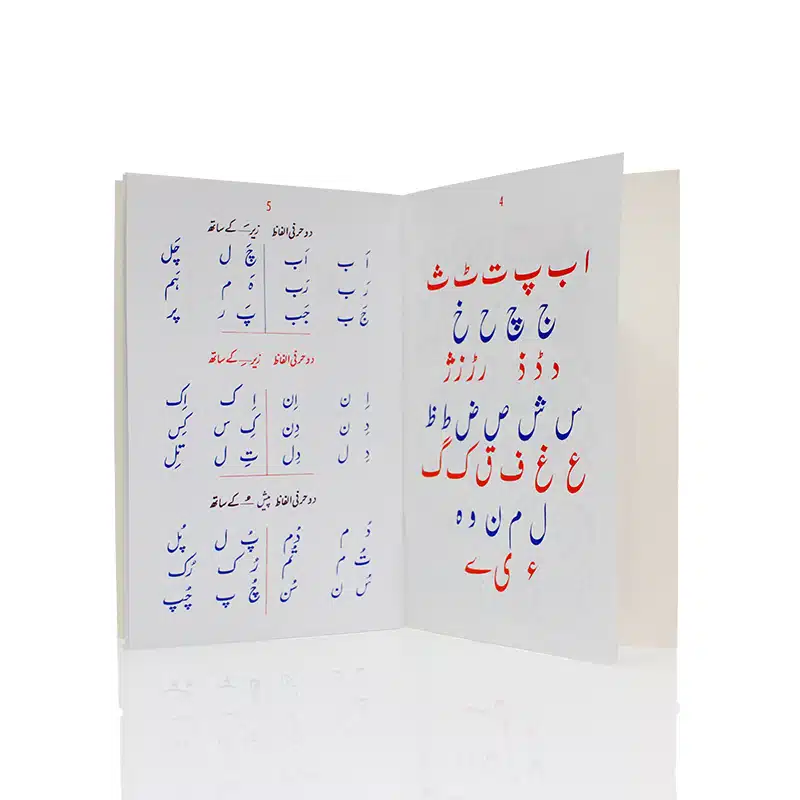 4
ا ب پ ت ٹ ث
ج چ ح خ
د ڈ ذ ر ڑ ز ژ
س ش ص ض ط ظ
ع غ ف ق ک گ
ل م ن و ہ
ء ی ے
5
دو حرفی الفاظ زبر ـَـ کے ساتھ
اَ ب اَب چَ ل چَل
رَ ب رَب ہَ م ہَم
جَ ب جَب پَ ر پَر
دو حرفی الفاظ زیر ـِـ کے ساتھ
اِ ن اِن اِ ک اِک
دِ ن دِن کِ س کِس
دِ ل دِل تِ ل تِل
دو حرفی الفاظ پیش ـُـ کے ساتھ
دُ م دُم پُ ل پُل
تُ م تُم رُ ک رُک
سُ ن سُن چُ پ چُپ